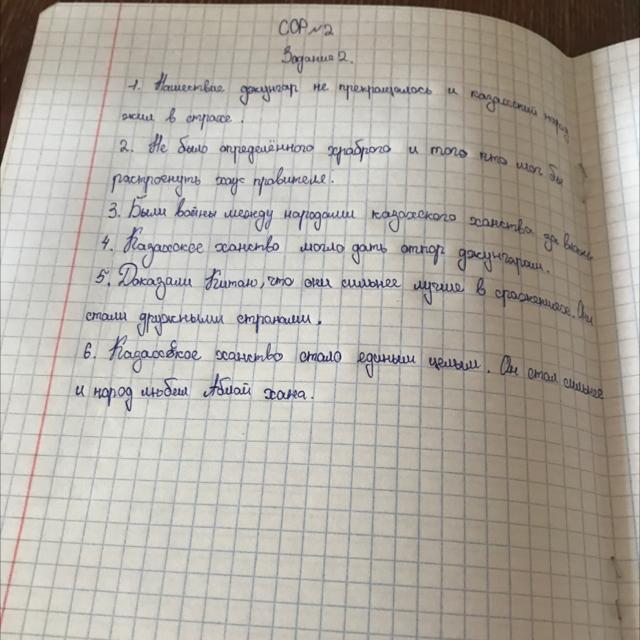 СОР №2
Задание 2.
1. Нашествие джунгар не прекращалось и казахский народ
жил в страхе.
2. Не было определённого храброго и того кто мог бы
правителе.
3. Были войны между народами казахского ханства за власть
4. Казахское ханство могло дать отпор джунгарам.
5. Доказали Китаю, что они сильнее лучше в сражениях. Они
стали дружными странами.
6. Казахское ханство стало единым целым. Он стал сильнее
и народ любил Аблай хана.